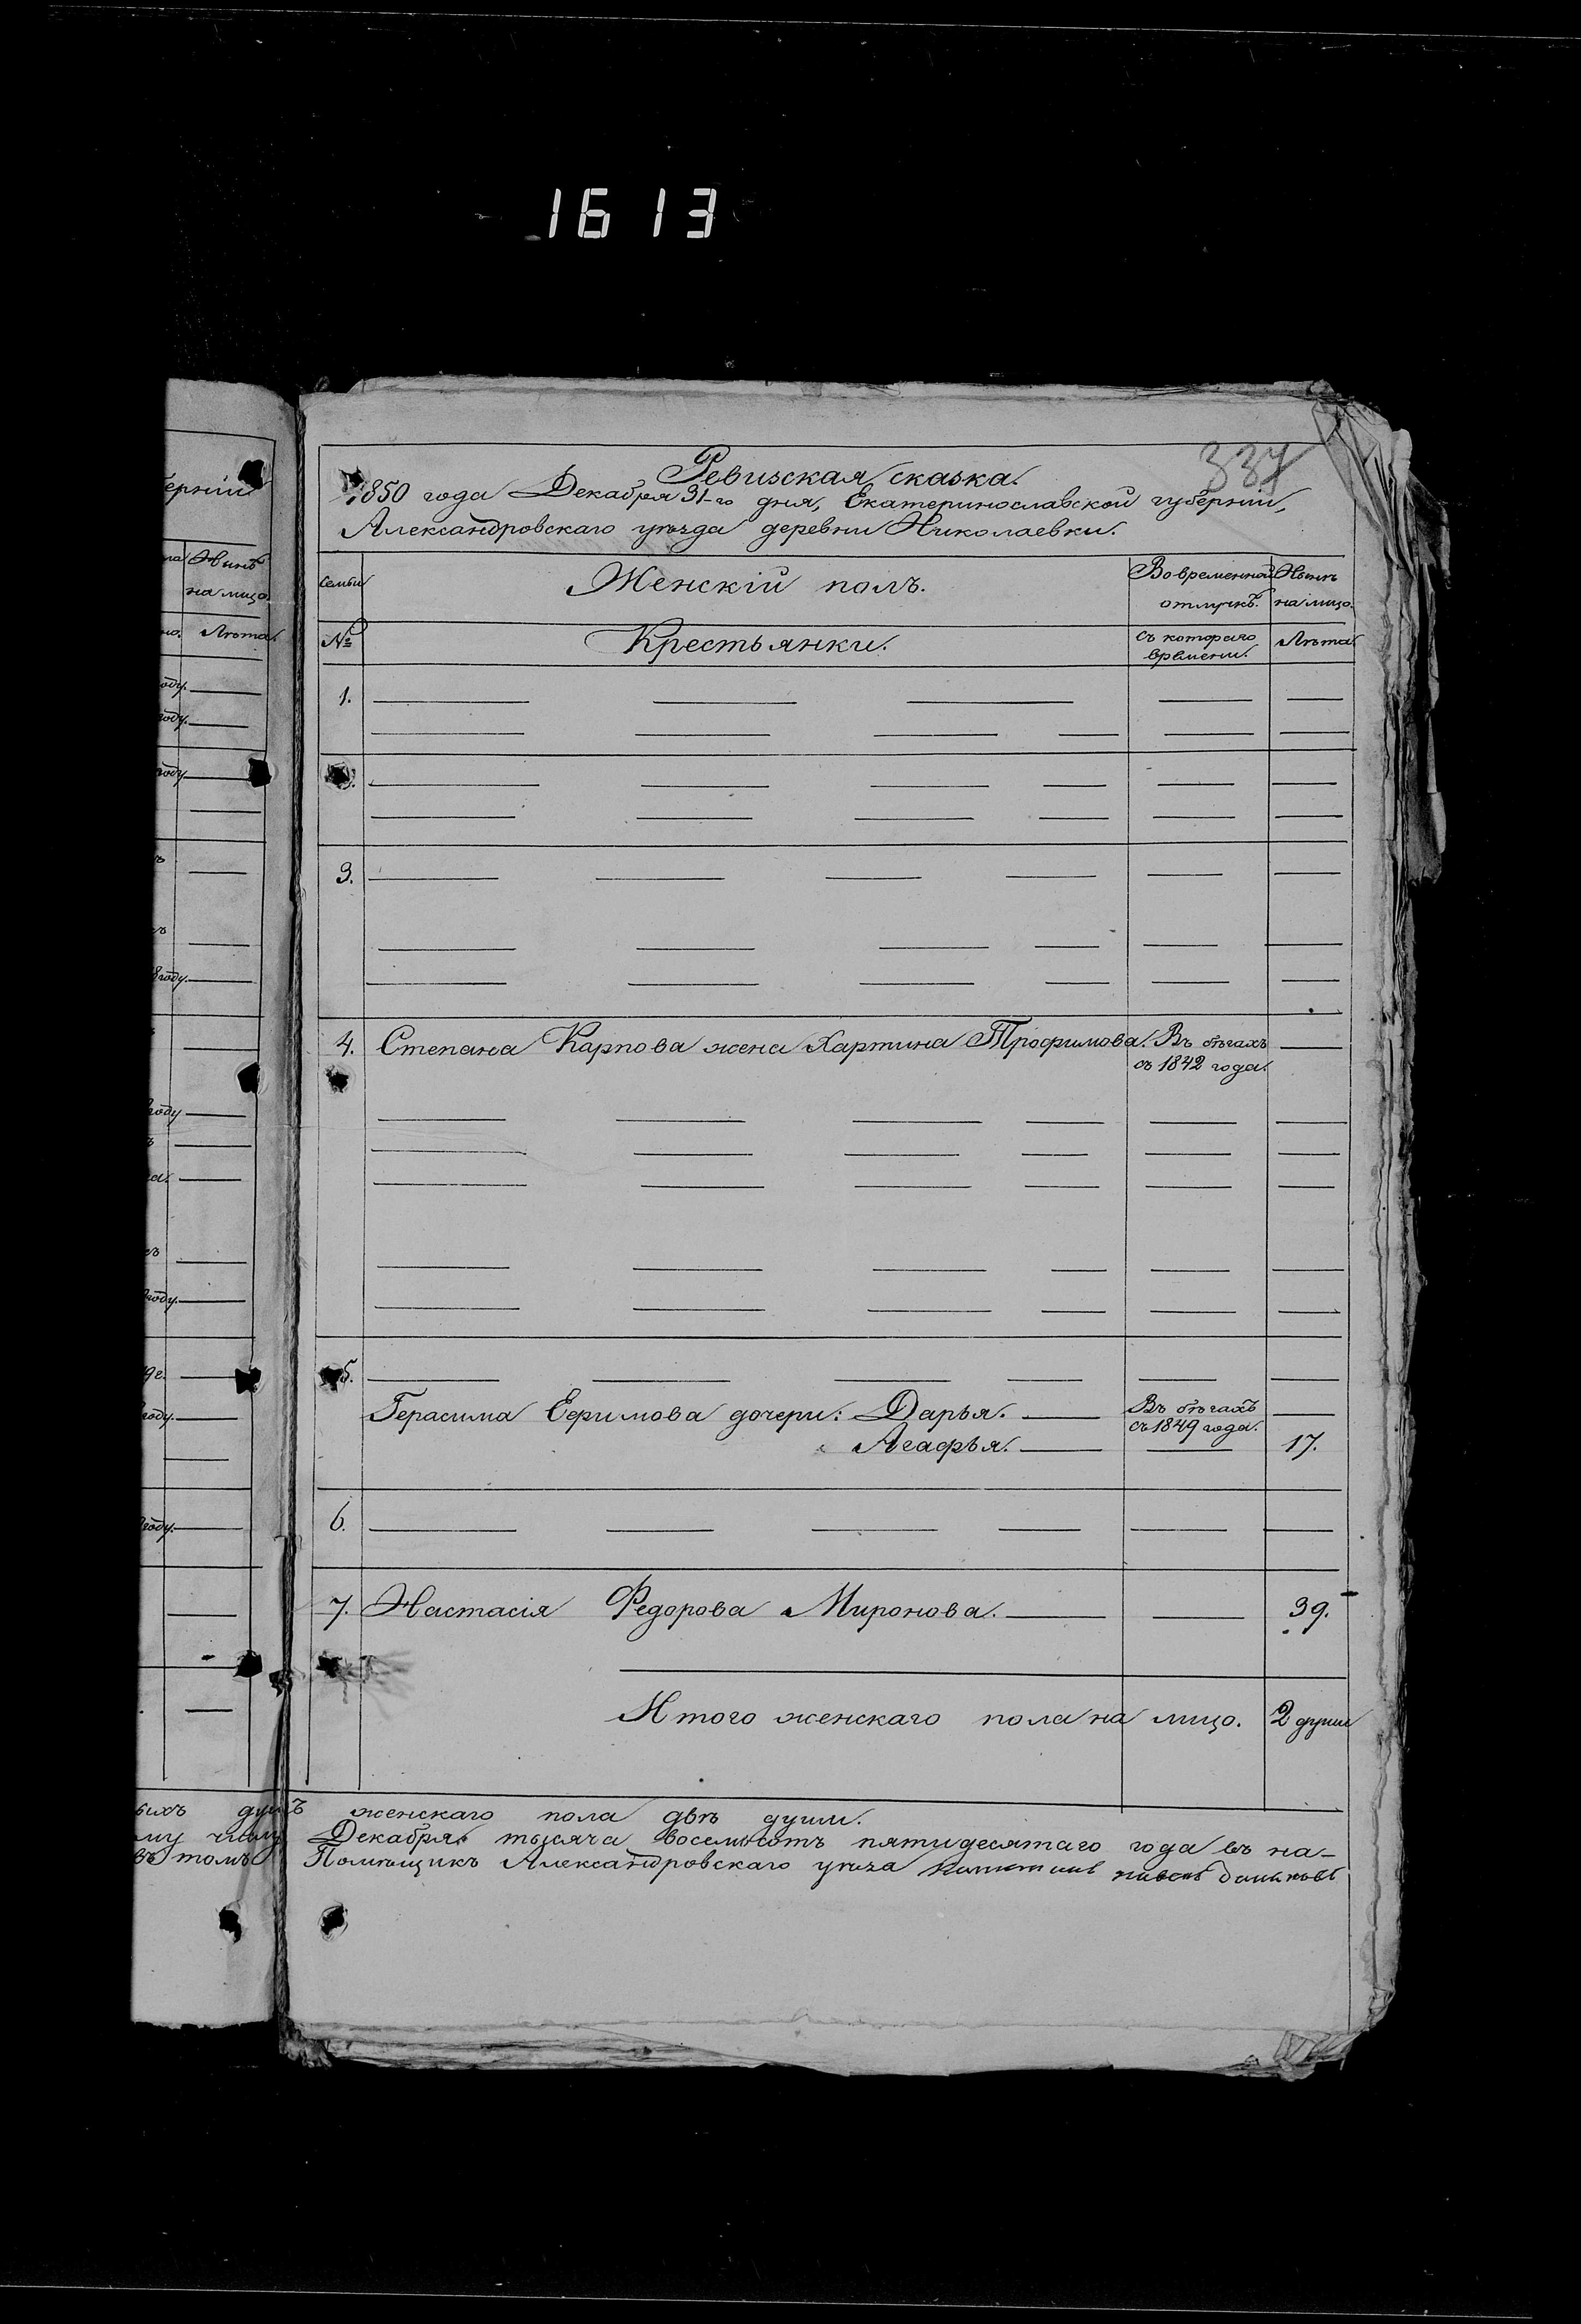 1613
337
Ревизская сказка.
1850 года Декабря 31-го дня, Екатеринославской губерніи,
Александровскаго уѣзда деревни Николаевки.
ерніи
Нынѣ
на лицо.
Лѣта.
Семьи
Женскій полъ.
Во временной отлучкѣ.
Нынѣ на лицо.
№
Крестьянки.
съ котораго времени.
Лѣта.
1.
3.
4. Степана Карпова жена Хартина Трофимова. Въ бѣгахъ
съ 1842 года.
5.
Герасима Ефимова дочери: Дарья. Въ бѣгахъ
съ 1849 года.
Агафья. 17.
6.
7. Настасія Федорова Миронова. 39.
Итого женскаго пола на лицо. 2 души
году.
году.
году
году.
году
году.
году.
году.
ыхъ душъ женскаго пола двѣ души.
му числу Декабря тысяча восемьсотъ пятидесятаго года въ на-
въ томъ Помѣщикъ Александровскаго уѣзда